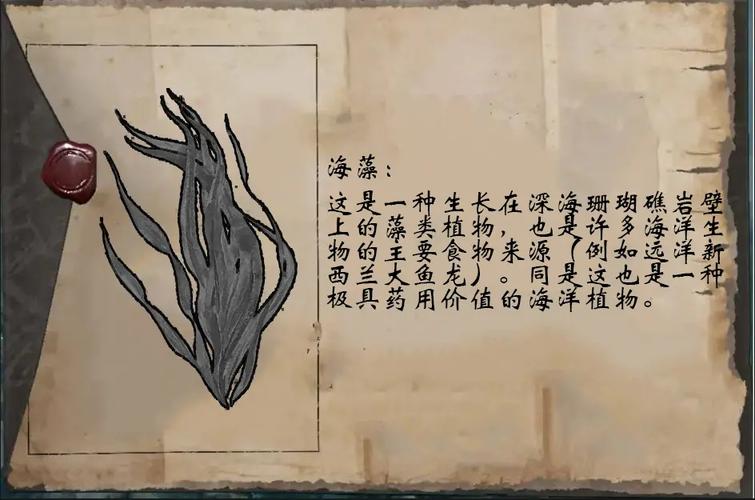 海藻：
这是一种生长在深海珊瑚礁岩壁
上的藻类植物，也是许多海洋生
物的主要食物来源（例如远洋新
西兰大鱼龙）。同是这也是一种
极具药用价值的海洋植物。